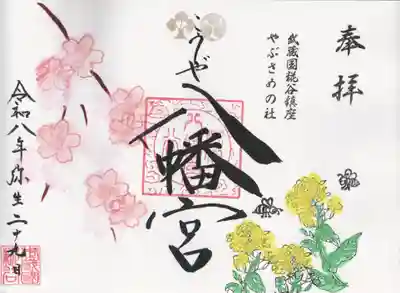 奉拝
武蔵国糀谷鎮座
やぶさめの社
こうじや
八幡宮
令和八年弥生二十九日